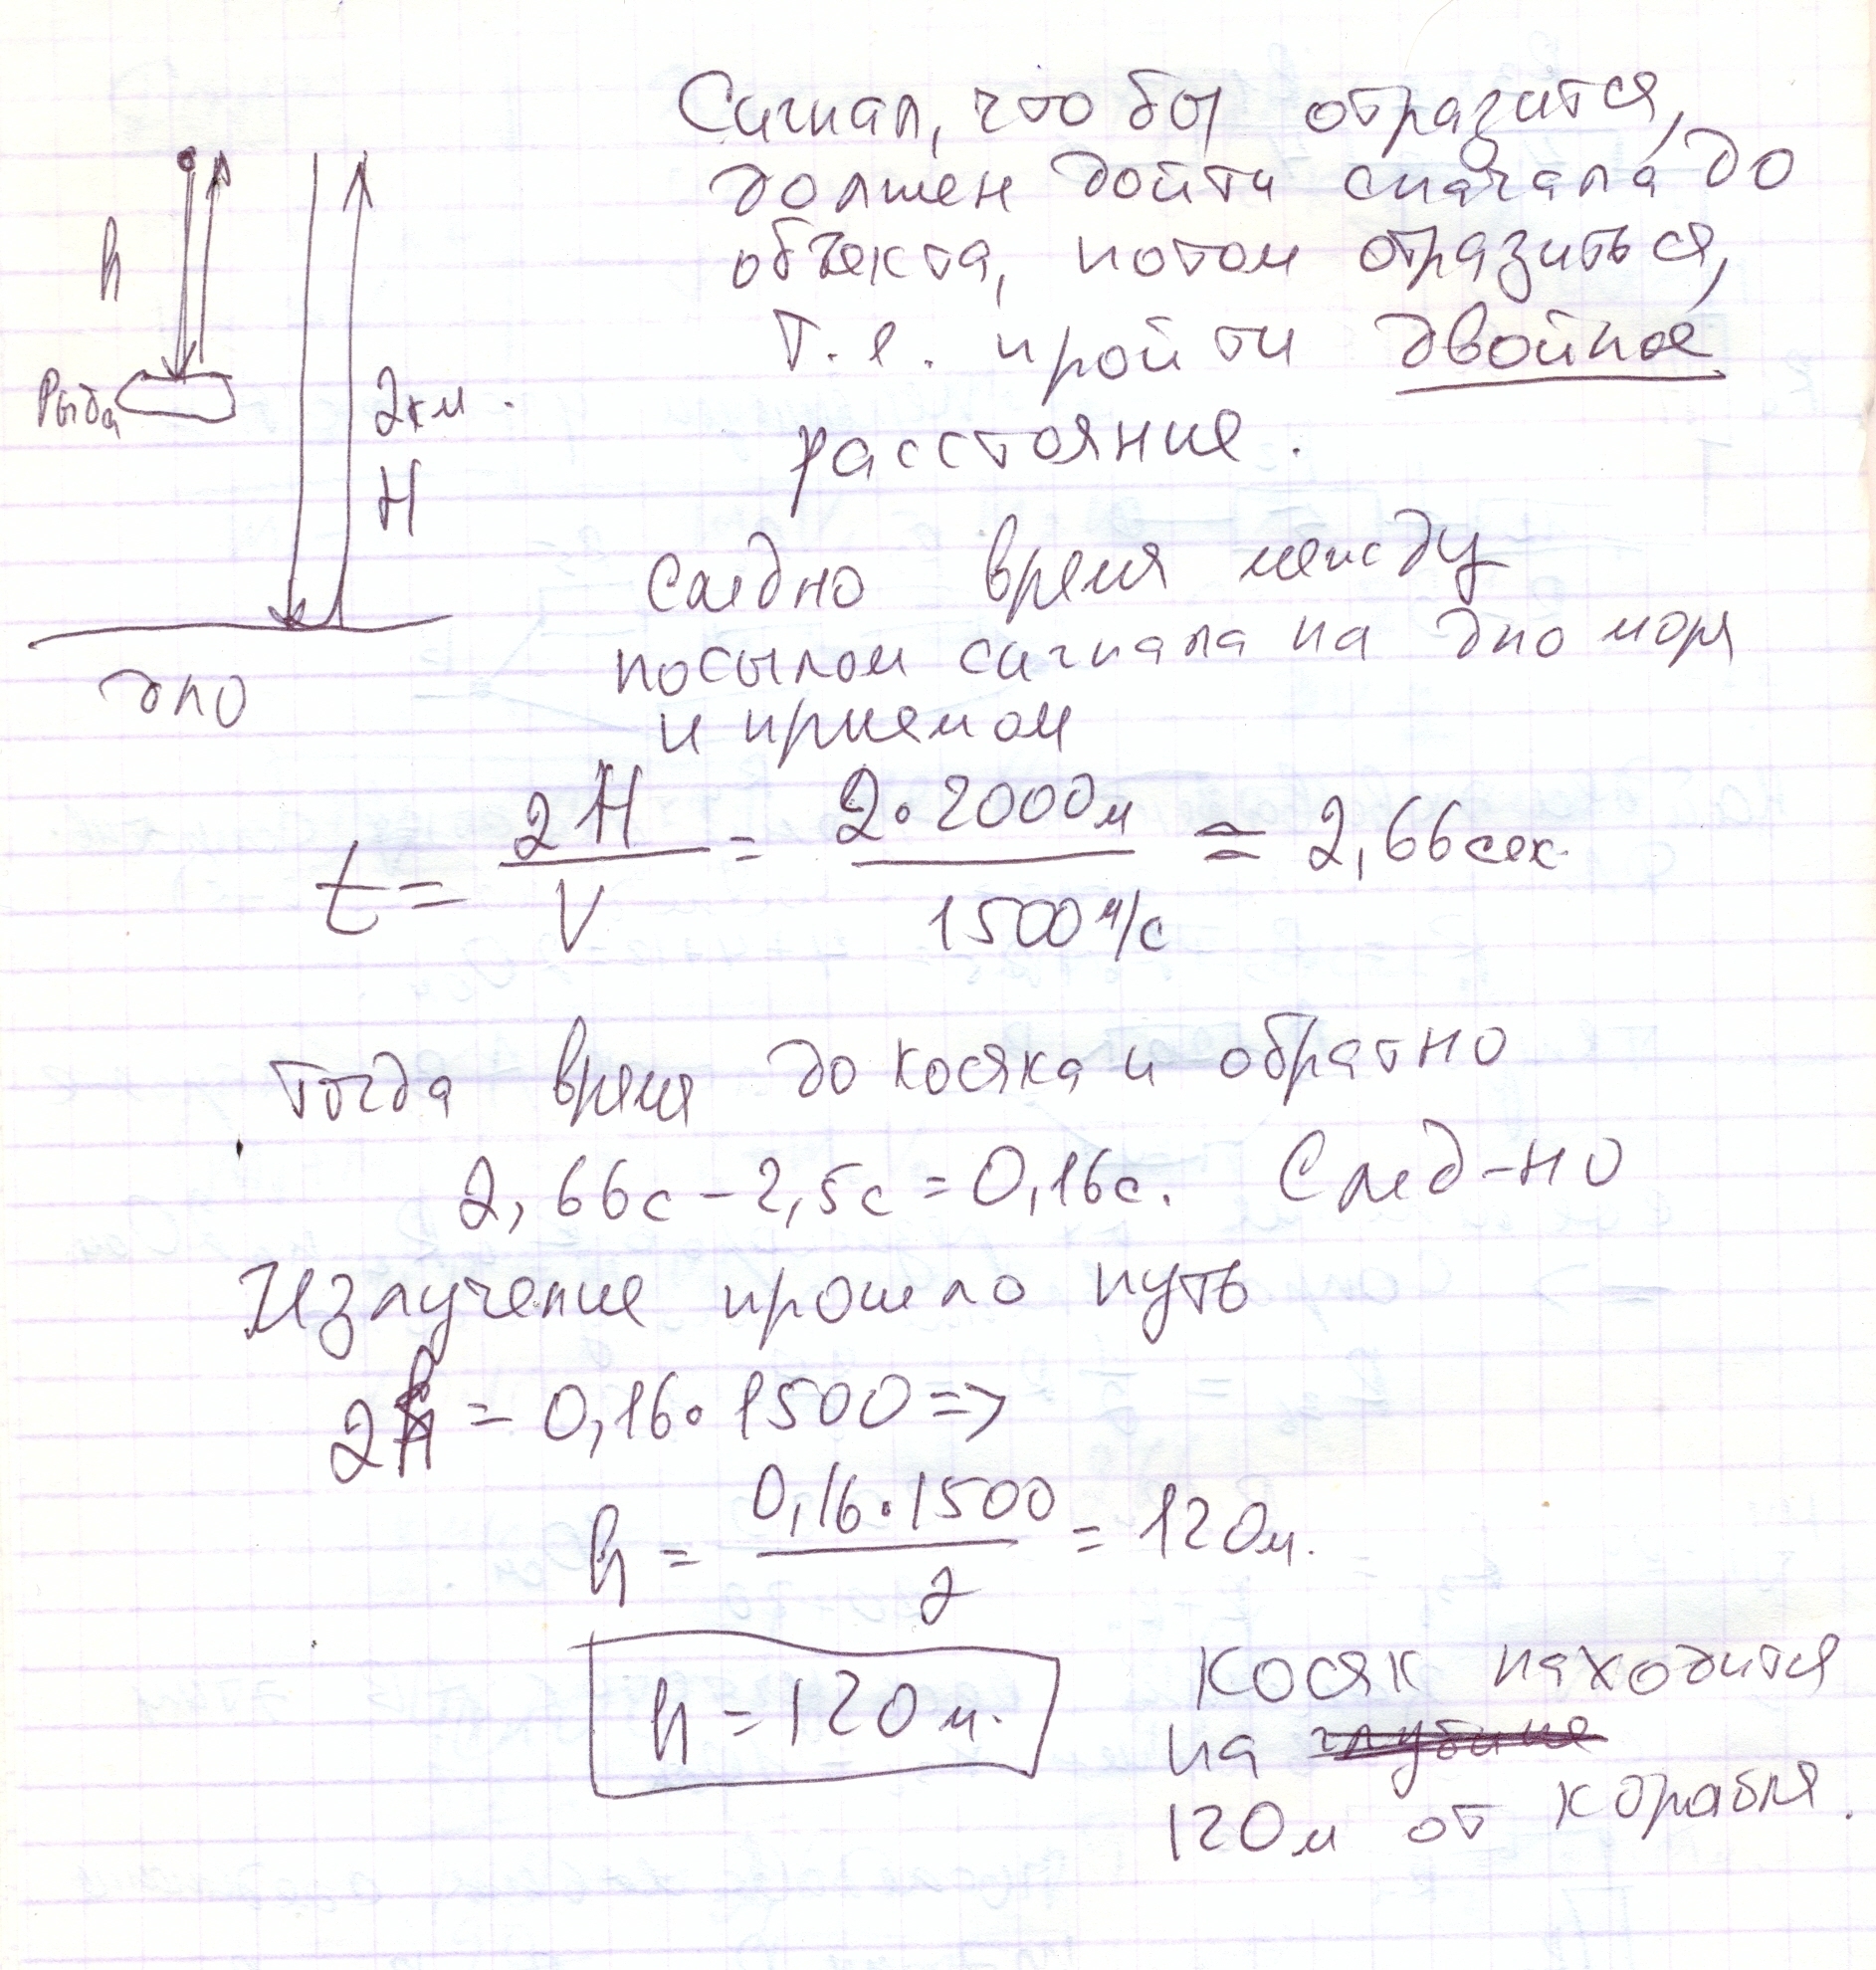 Сигнал, что бы отразится,
должен дойти сначала до
объекта, потом отразиться,
т.е. пройти двойное
расстояние.
h
Рыба
2км.
H
дно
Следно время между
посылом сигнала на дно моря
и приемом
t = 2H / V = 2·2000м / 1500 м/с ≃ 2,66сек.
Тогда время до косяка и обратно
2,66с – 2,5с = 0,16с. След-но
Излучение прошло путь
2h = 0,16·1500 =>
h = 0,16·1500 / 2 = 120м.
h = 120м.
косяк находится
на глубине
120м от корабля.